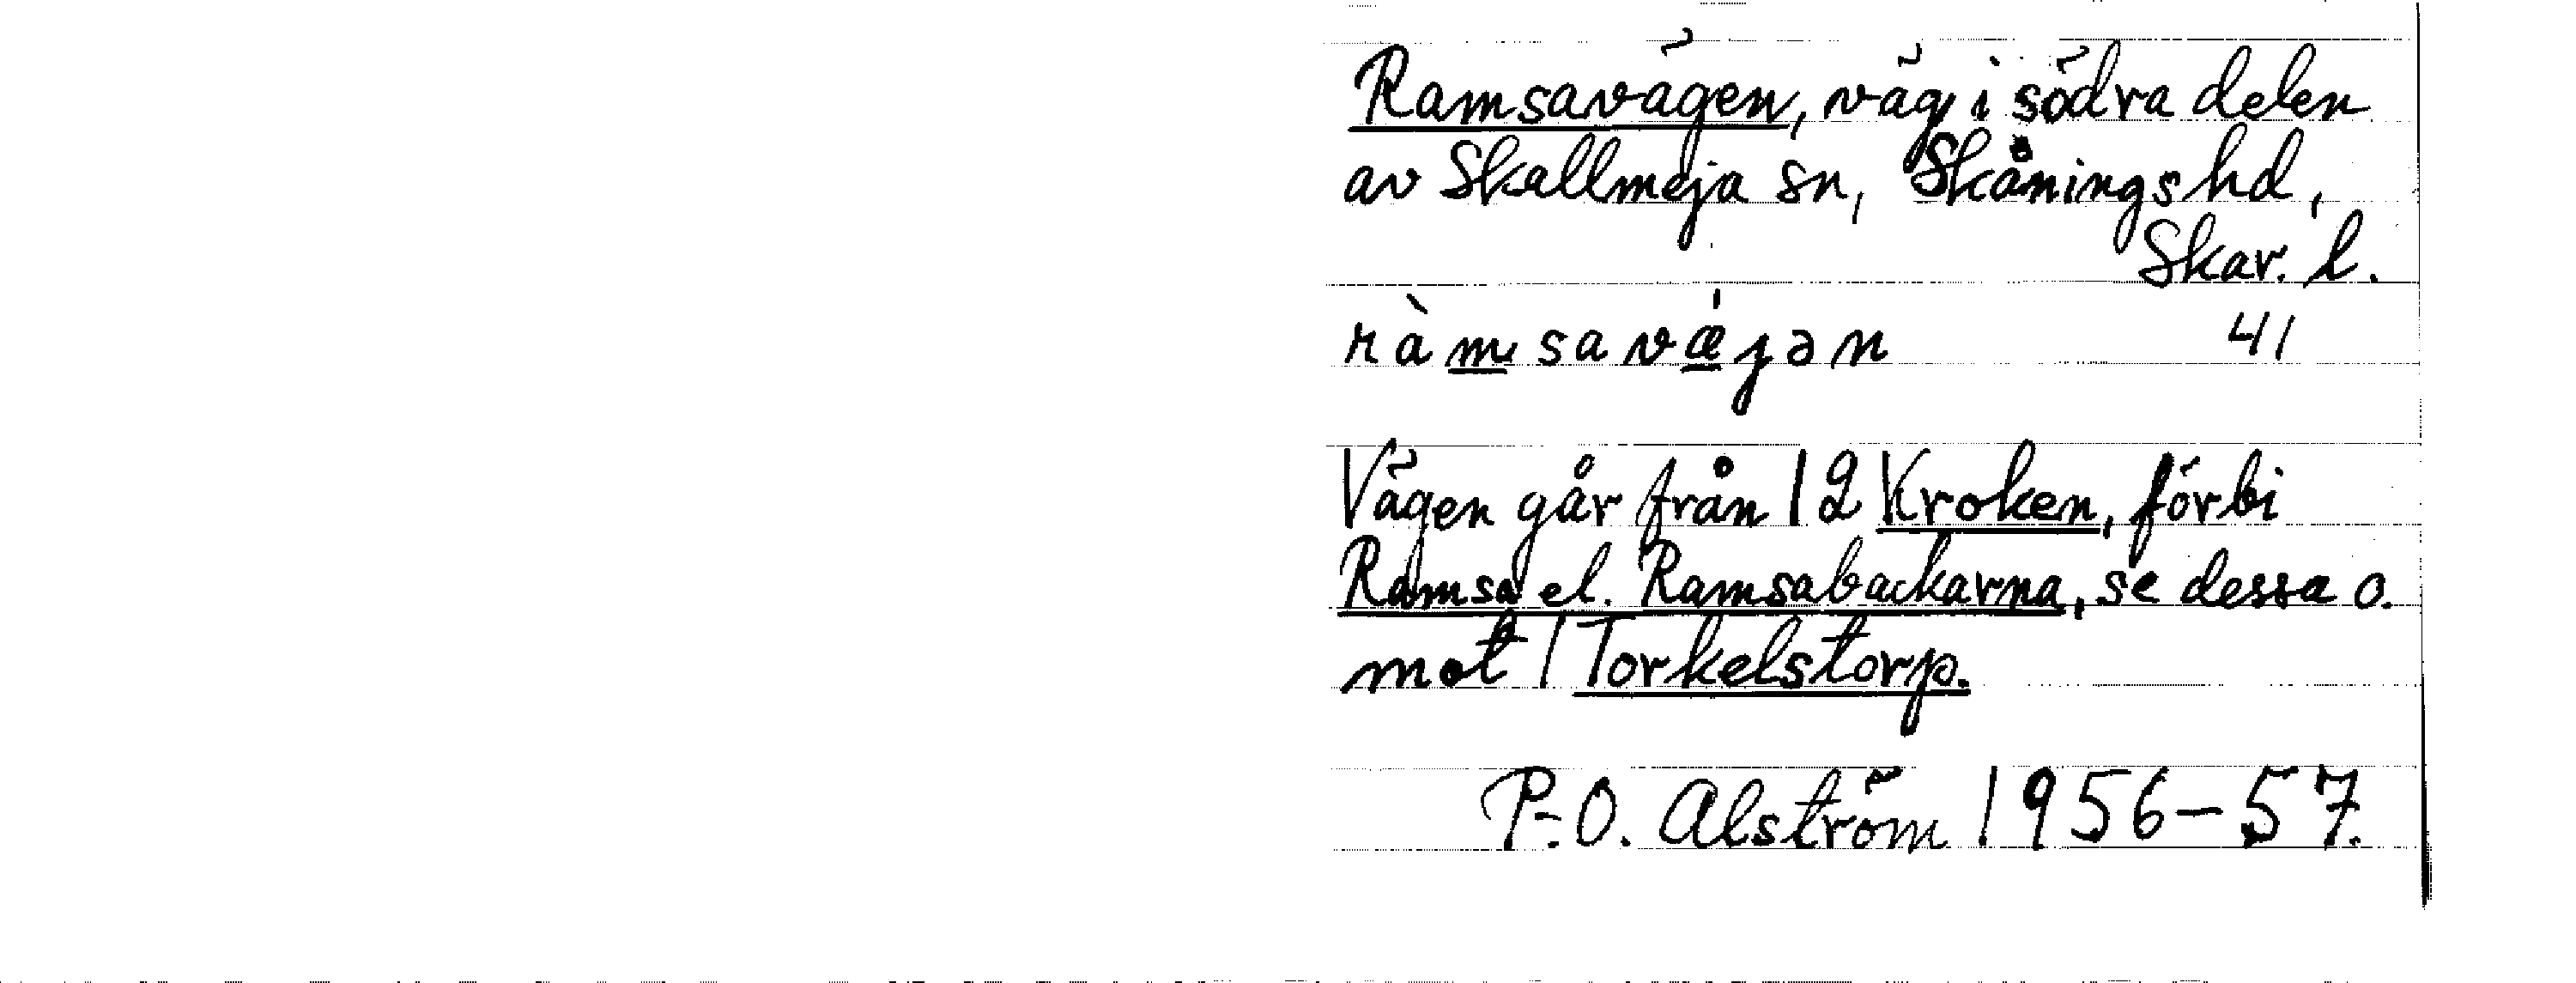 Ramsavägen, väg i södra delen
av Skallmeja sn, Skånings hd,
Skar. l.
ràmsavǽjən 41
Vägen går från 1 2 Kroken, förbi
Ramsa el. Ramsabackarna, se dessa o.
mot 1 Torkelstorp.
P.-O. Alström 1956-57.